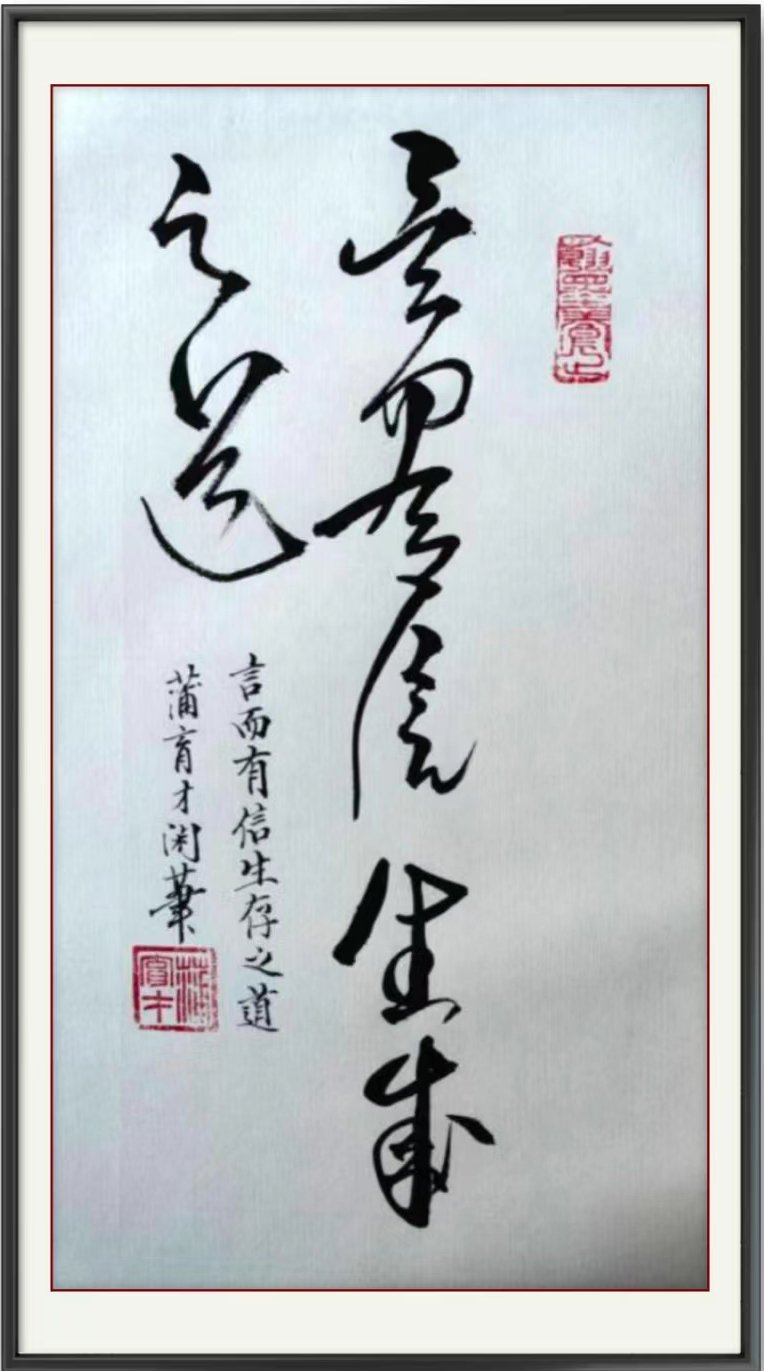 言而有信生存
之道
言而有信生存之道
蒲育才闲笔